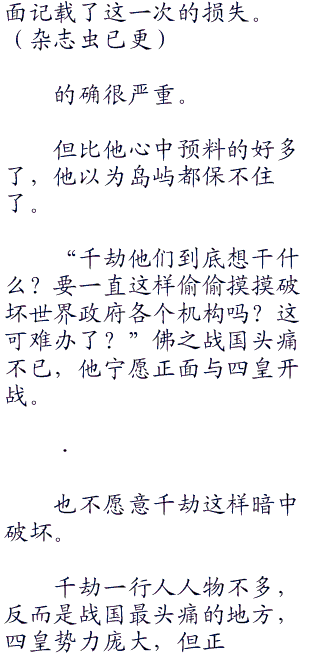 面记载了这一次的损失。
（杂志虫已更）
的确很严重。
但比他心中预料的好多
了，他以为岛屿都保不住
了。
“千劫他们到底想干什
么？要一直这样偷偷摸摸破
坏世界政府各个机构吗？这
可难办了？”佛之战国头痛
不已，他宁愿正面与四皇开
战。
.
也不愿意千劫这样暗中
破坏。
千劫一行人人物不多，
反而是战国最头痛的地方，
四皇势力庞大，但正